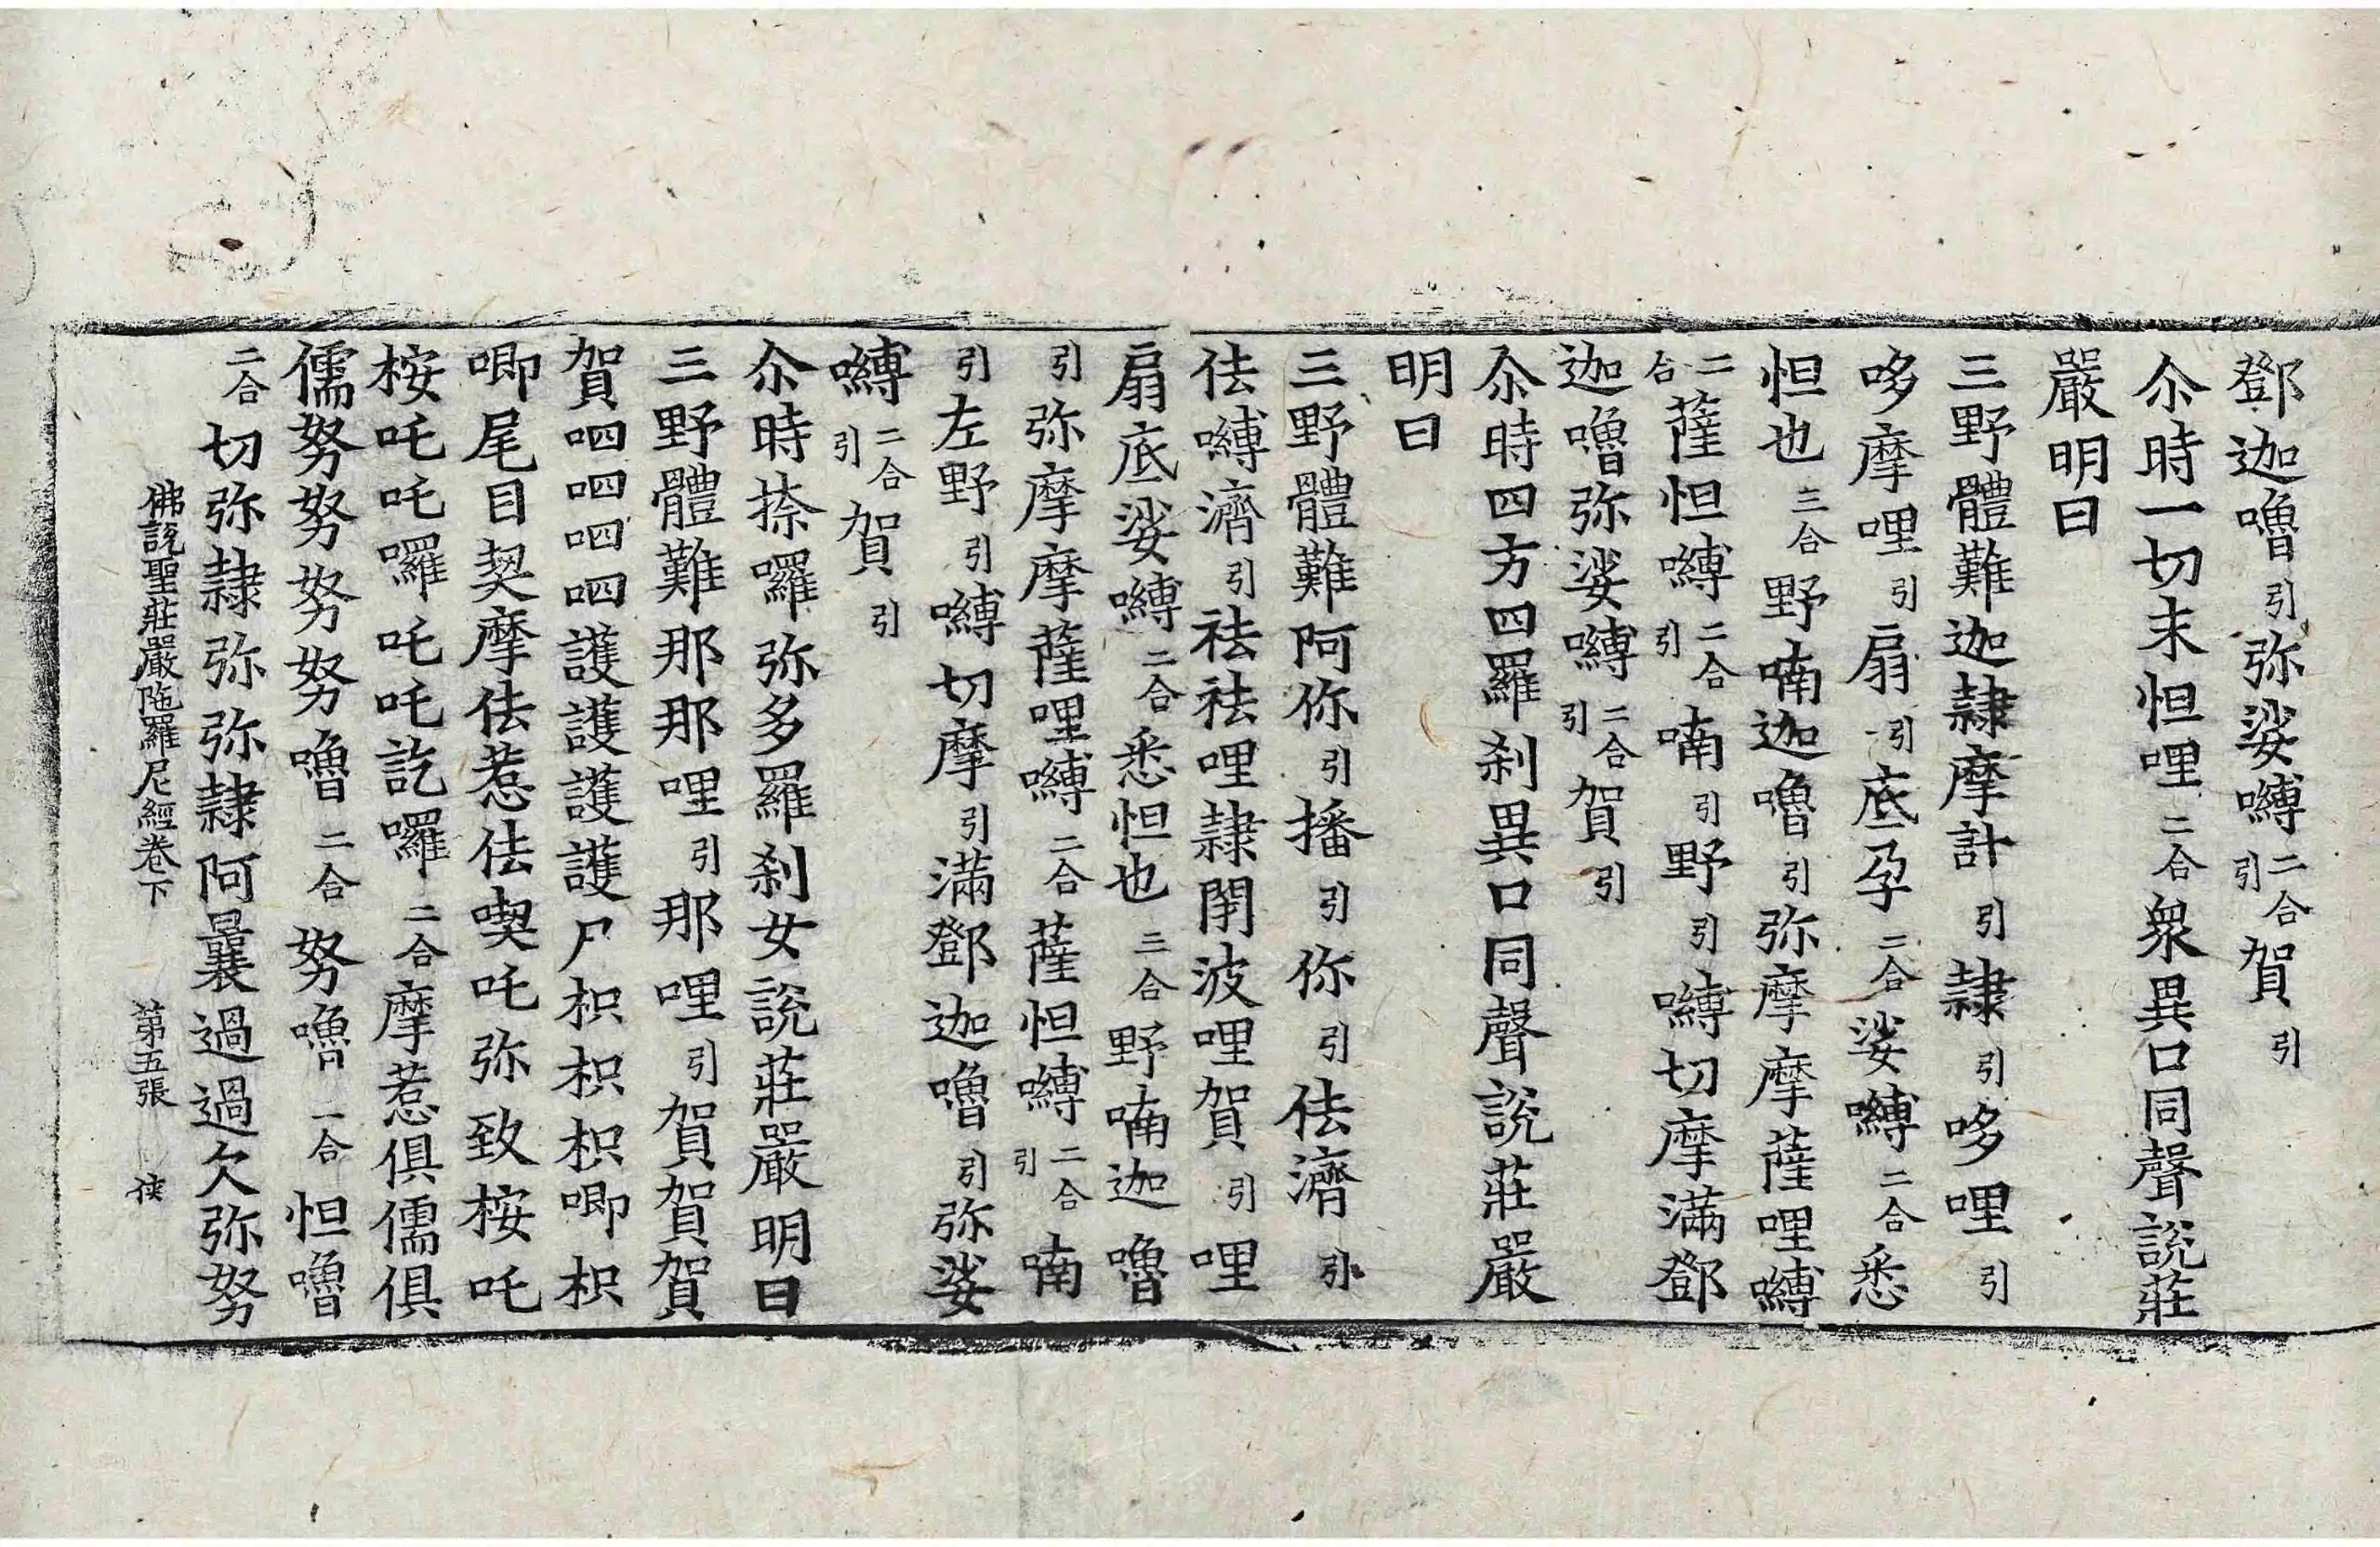 鄧迦嚕引弥娑嚩二合引賀引
尒時一切末怛哩二合衆異口同聲說莊
嚴明曰
三野體難迦隷摩計引隷引哆哩引
哆摩哩引扇引底孕二合娑嚩二合悉
怛也三合野喃迦嚕引弥摩摩薩哩嚩
二合薩怛嚩二合引喃引野引嚩切摩滿鄧
迦嚕弥娑嚩二合引賀引
尒時四方四羅刹異口同聲說莊嚴
明曰
三野體難阿你引播引你引佉濟引
佉嚩濟引祛祛哩隷閉波哩賀引哩
扇底娑嚩二合悉怛也三合野喃迦嚕
引弥摩摩薩哩嚩二合薩怛嚩二合引喃
引左野引嚩切摩引滿鄧迦嚕引弥娑
嚩二合引賀引
尒時捺囉弥多羅刹女說莊嚴明曰
三野體難那那哩引那哩引賀賀賀
賀呬呬呬護護護護尸枳枳枳唧枳
唧尾目契摩佉惹佉喫吒弥致桉吒
桉吒吒囉吒吒訖囉二合摩惹俱儒俱
儒努努努努嚕二合努嚕一合怛嚕
二合切弥隷弥弥隷阿曩過過欠弥努
佛說聖莊嚴陁羅尼經卷下 第五張 俠